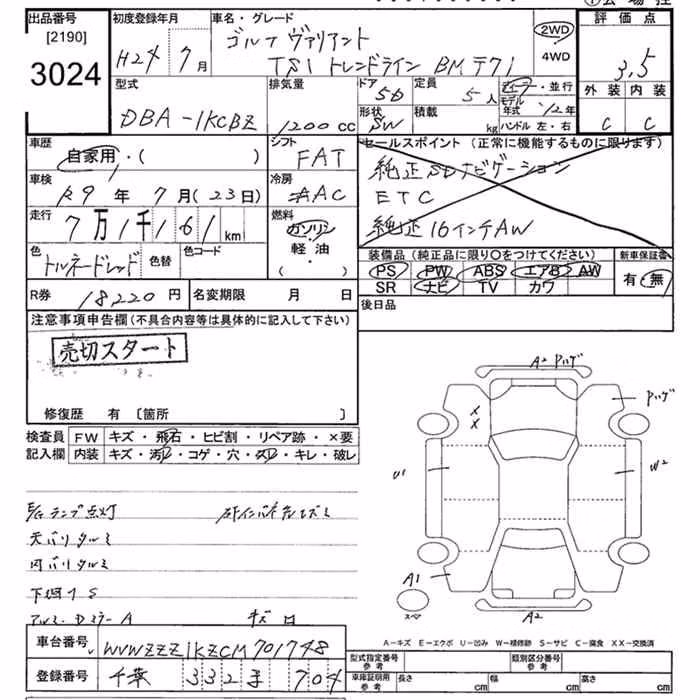 出品番号
[2190]
3024
初度登録年月
H24年 7月
車名・グレード
ゴルフ ヴァリアント
TSI トレンドライン BM T71
2WD
4WD
評価点
3.5
外装 内装
C C
型式
DBA-1KCBZ
排気量
1200 cc
ドア
5D
形状
SW
定員
5人
積載
kg
ディーラー・並行
モデル年式 '12年
ハンドル 左・右
車歴
自家用・( )
シフト
FAT
車検
R9年 7月(23日)
冷房
AAC
走行
7万1千161km
燃料
ガソリン
軽・油
・( )
色
トルネードレッド
色替
色コード
R券 18220円
名変期限 月 日
セールスポイント (正常に機能するものに限ります)
純正SDナビゲーション
ETC
純正16インチAW
装備品(純正品に限り○をつけてください)
PS PW ABS エアB AW
SR ナビ TV カワ
新車保証書
有・無
後日品
注意事項申告欄(不具合内容等は具体的に記入して下さい)
売切スタート
修復歴 有 〔箇所 〕
検査員記入欄
FW キズ・飛石・ヒビ割・リペア跡・×要
内装 キズ・汚レ・コゲ・穴・スレ・キレ・破レ
天バリタルミ
内バリタルミ
下廻りS
アルミ・DミラーA
A2 ハゲ
ハゲ
U1
W2
A1
A2
スペア
A-キズ E-エクボ U-凹み W-補修跡 S-サビ C-腐食 XX-交換済
車台番号 WVWZZZ1KZCM701748
登録番号 千葉 332 す 704
型式指定番号
参考
類別区分番号
参考
車庫証明用
参考
長さ cm
幅 cm
高さ cm